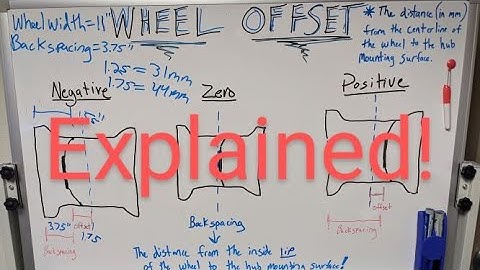 WHEEL OFFSET
Wheel width=11"
Backspacing=3.75"
1.25 = 31mm
1.75 = 44mm
* The distance (in mm)
from the centerline of
the wheel to the hub
mounting surface.
Negative
Zero
Positive
Explained!
3.75"
offset
1.75
Backspacing
Backspacing
offset
Backspacing
The distance from the inside lip
of the wheel to the hub mounting surface!